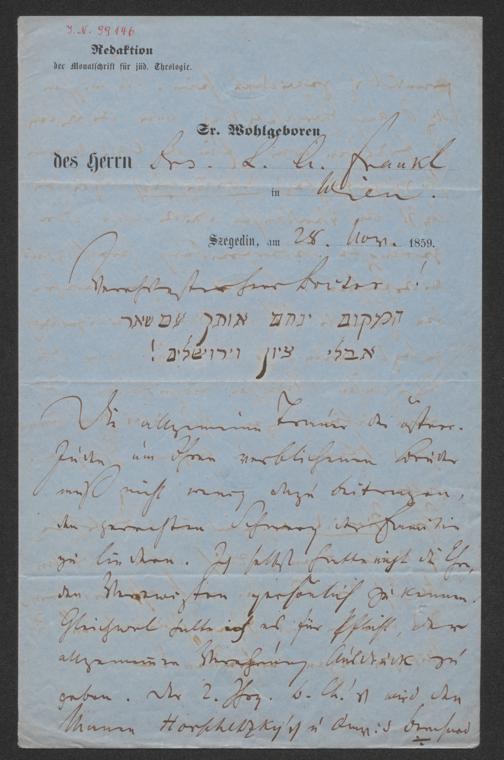 J. N. 99146
Redaktion
der Monatschrift für jüd. Theologie.
Sr. Wohlgeboren
des Herrn Drs. L. A. Frankl
in Wien.
Szegedin, am 28. Nov. 1859.
Verehrtester Herr Doctor!
המקום ינחם אותך עם שאר
אבלי ציון וירושלים!
Die allgemeine Trauer der österr.
Juden um Ihren verblichenen Bruder
muß nicht wenig dazu beitragen,
den gerechten Schmerz der Familie
zu lindern. Ich selbst hatte nicht die Ehre,
den Verewigten persönlich zu kennen.
Gleichwol halte ich es für Pflicht, der
allgemeinen Verehrung Ausdruck zu
geben. Das 2. Hft. b. Ch. wird den
Manen Horschetzky's u